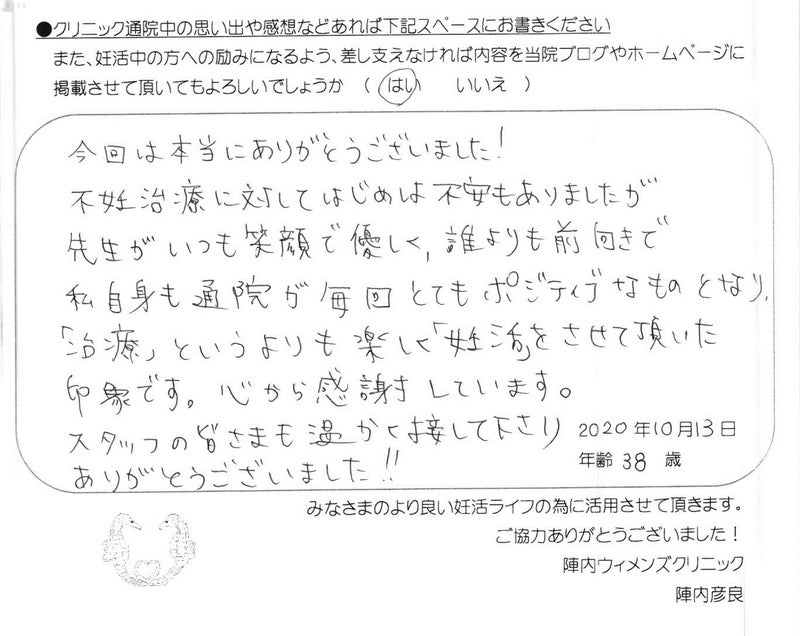 ●クリニック通院中の思い出や感想などあれば下記スペースにお書きください
また、妊活中の方への励みになるよう、差し支えなければ内容を当院ブログやホームページに
掲載させて頂いてもよろしいでしょうか （ はい いいえ ）
今回は本当にありがとうございました!
不妊治療に対してはじめは不安もありましたが
先生がいつも笑顔で優しく,誰よりも前向きで
私自身も通院が毎回とてもポジティブなものとなり,
「治療」というよりも楽しく「妊活」をさせて頂いた
印象です。心から感謝しています。
スタッフの皆さまも温かく接して下さり
ありがとうございました!!
2020年10月13日
年齢 38 歳
みなさまのより良い妊活ライフの為に活用させて頂きます。
ご協力ありがとうございました！
陣内ウィメンズクリニック
陣内彦良